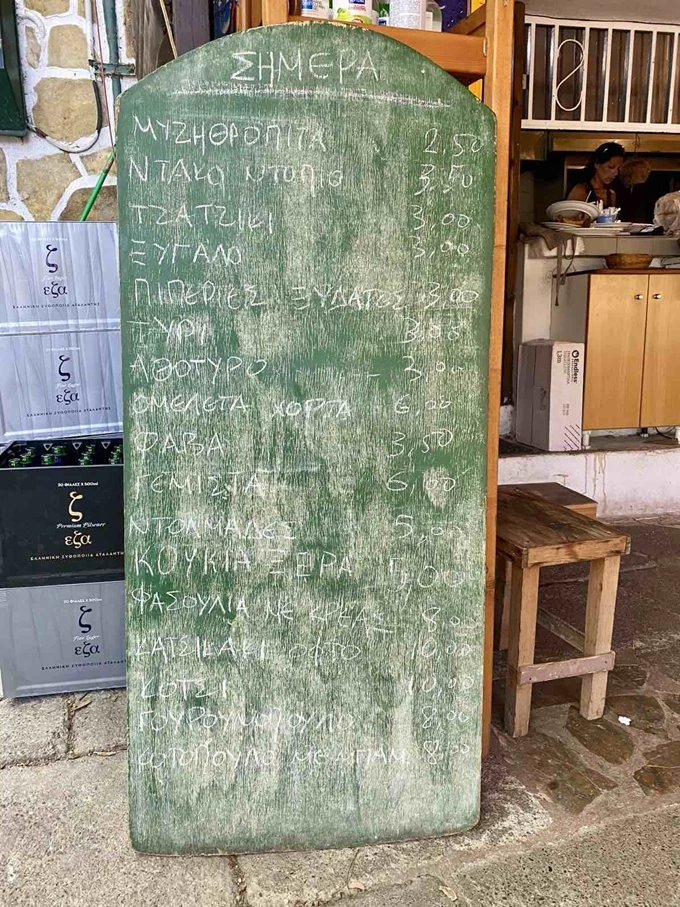 ΣΗΜΕΡΑ
ΜΥΖΗΘΡΟΠΙΤΑ 2,50
ΝΤΑΚΟ ΝΤΟΠΙΟ 3,50
ΤΖΑΤΖΙΚΙ 3,00
ΞΥΓΑΛΟ 3,00
ΠΙΠΕΡΙΕΣ ΞΥΔΑΤΕΣ 3,00
ΤΥΡΙ 3,00
ΑΘΟΤΥΡΟ - 3,00
ΟΜΕΛΕΤΑ ΧΟΡΤΑ 6,00
ΦΑΒΑ 3,50
ΓΕΜΙΣΤΑ 6,00
ΝΤΟΛΜΑΔΕΣ 5,00
ΚΟΥΚΙΑ ΞΕΡΑ 5,00
ΦΑΣΟΥΛΙΑ ΜΕ ΚΡΕΑΣ 8,00
ΚΑΤΣΙΚΑΚΙ ΟΦΤΟ 10,00
ΚΟΤΣΙ 10,00
ΓΟΥΡΟΥΝΟΠΟΥΛΟ 8,00
ΚΟΤΟΠΟΥΛΟ ΜΕ ΜΠΑΜ. 8,00
ζ
εζα
ΕΛΛΗΝΙΚΗ ΖΥΘΟΠΟΙΙΑ ΑΤΑΛΑΝΤΗΣ
ζ
Fine Lager
εζα
ΕΛΛΗΝΙΚΗ ΖΥΘΟΠΟΙΙΑ ΑΤΑΛΑΝΤΗΣ
20 ΦΙΑΛΕΣ X 500ml
ζ
Premium Pilsener
εζα
ΕΛΛΗΝΙΚΗ ΖΥΘΟΠΟΙΙΑ ΑΤΑΛΑΝΤΗΣ
20 ΦΙΑΛΕΣ X 500ml
ζ
Fine Lager
εζα
ΕΛΛΗΝΙΚΗ ΖΥΘΟΠΟΙΙΑ ΑΤΑΛΑΝΤΗΣ
Endless